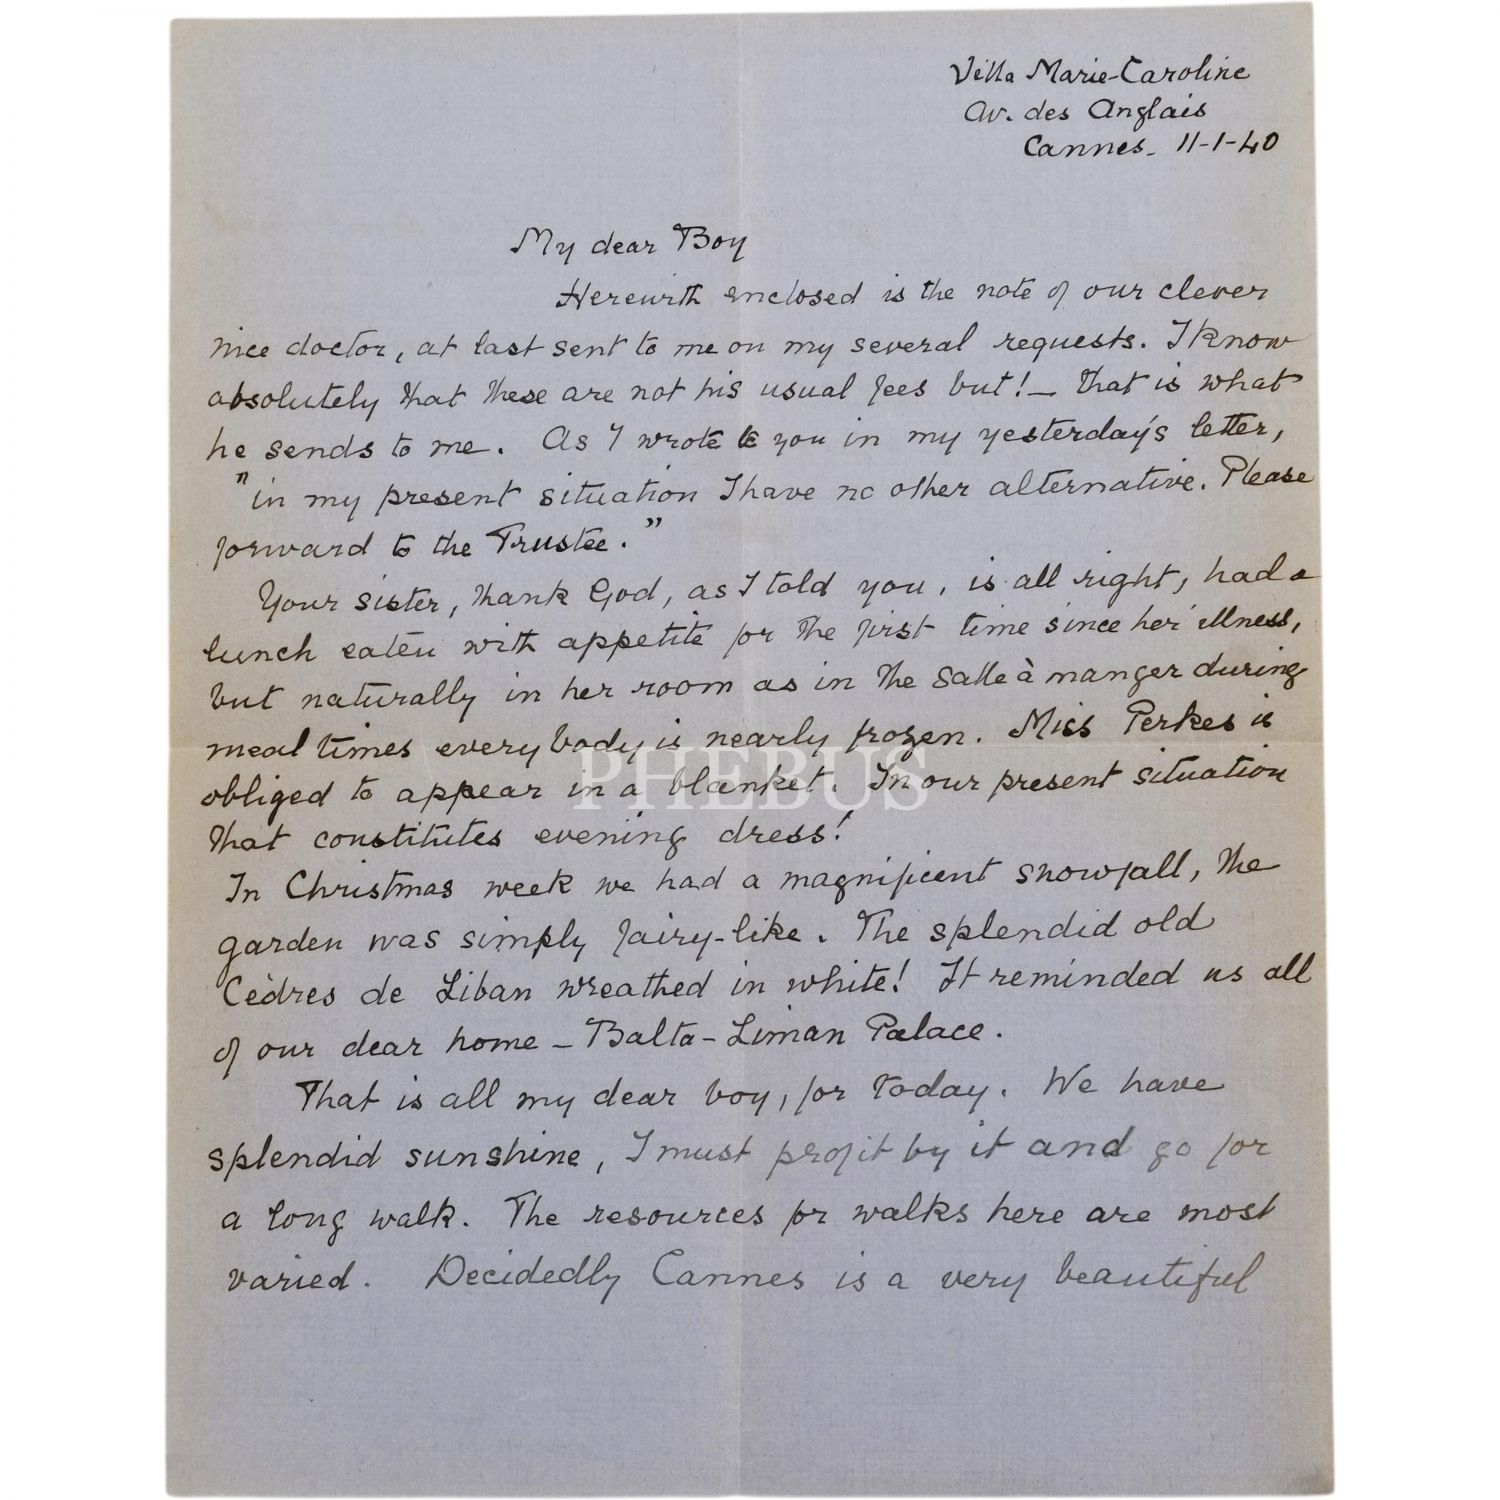 Villa Marie-Caroline
Av. des Anglais
Cannes. 11-1-40
My dear Boy
Herewith enclosed is the note of our clever
nice doctor, at last sent to me on my several requests. I know
absolutely that these are not his usual fees but! – That is what
he sends to me. As I wrote to you in my yesterday's letter,
"in my present situation I have no other alternative. Please
forward to the Trustee."
Your sister, thank God, as I told you, is all right, had a
lunch eaten with appetite for the first time since her illness,
but naturally in her room as in the salle à manger during
meal times everybody is nearly frozen. Miss Perkes is
obliged to appear in a blanket. In our present situation
that constitutes evening dress!
In Christmas week we had a magnificent snowfall, the
garden was simply fairy-like. The splendid old
Cèdres de Liban wreathed in white! It reminded us all
of our dear home – Balta-Liman Palace.
That is all my dear boy, for today. We have
splendid sunshine, I must profit by it and go for
a long walk. The resources for walks here are most
varied. Decidedly Cannes is a very beautiful
PHEBUS